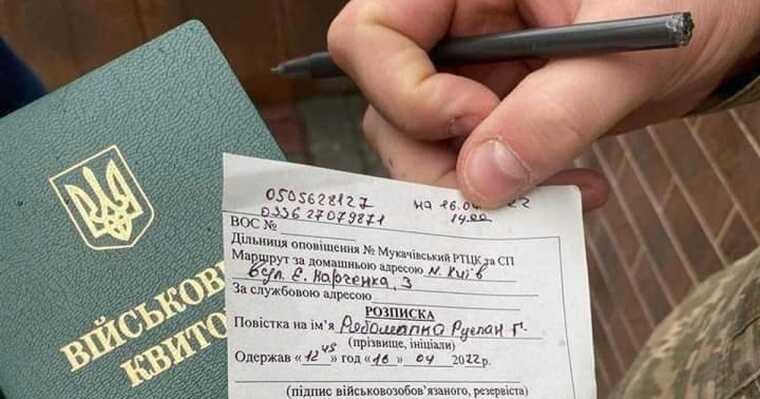 ВІЙСЬКОВ
КВИТО
0505628127
на 16.0 22
14.00
ВОС №
Дільниця оповіщення № Мукачівський РТЦК та СП
Маршрут за домашньою адресою м. Київ
вул. Є. Харченка, 3
За службовою адресою
РОЗПИСКА
Повістка на ім'я Руслан Г.
(прізвище, ініціали)
Одержав « 12 45 » год « 16 » 04 2022р.
(підпис військовозобов'язаного, резервіста)